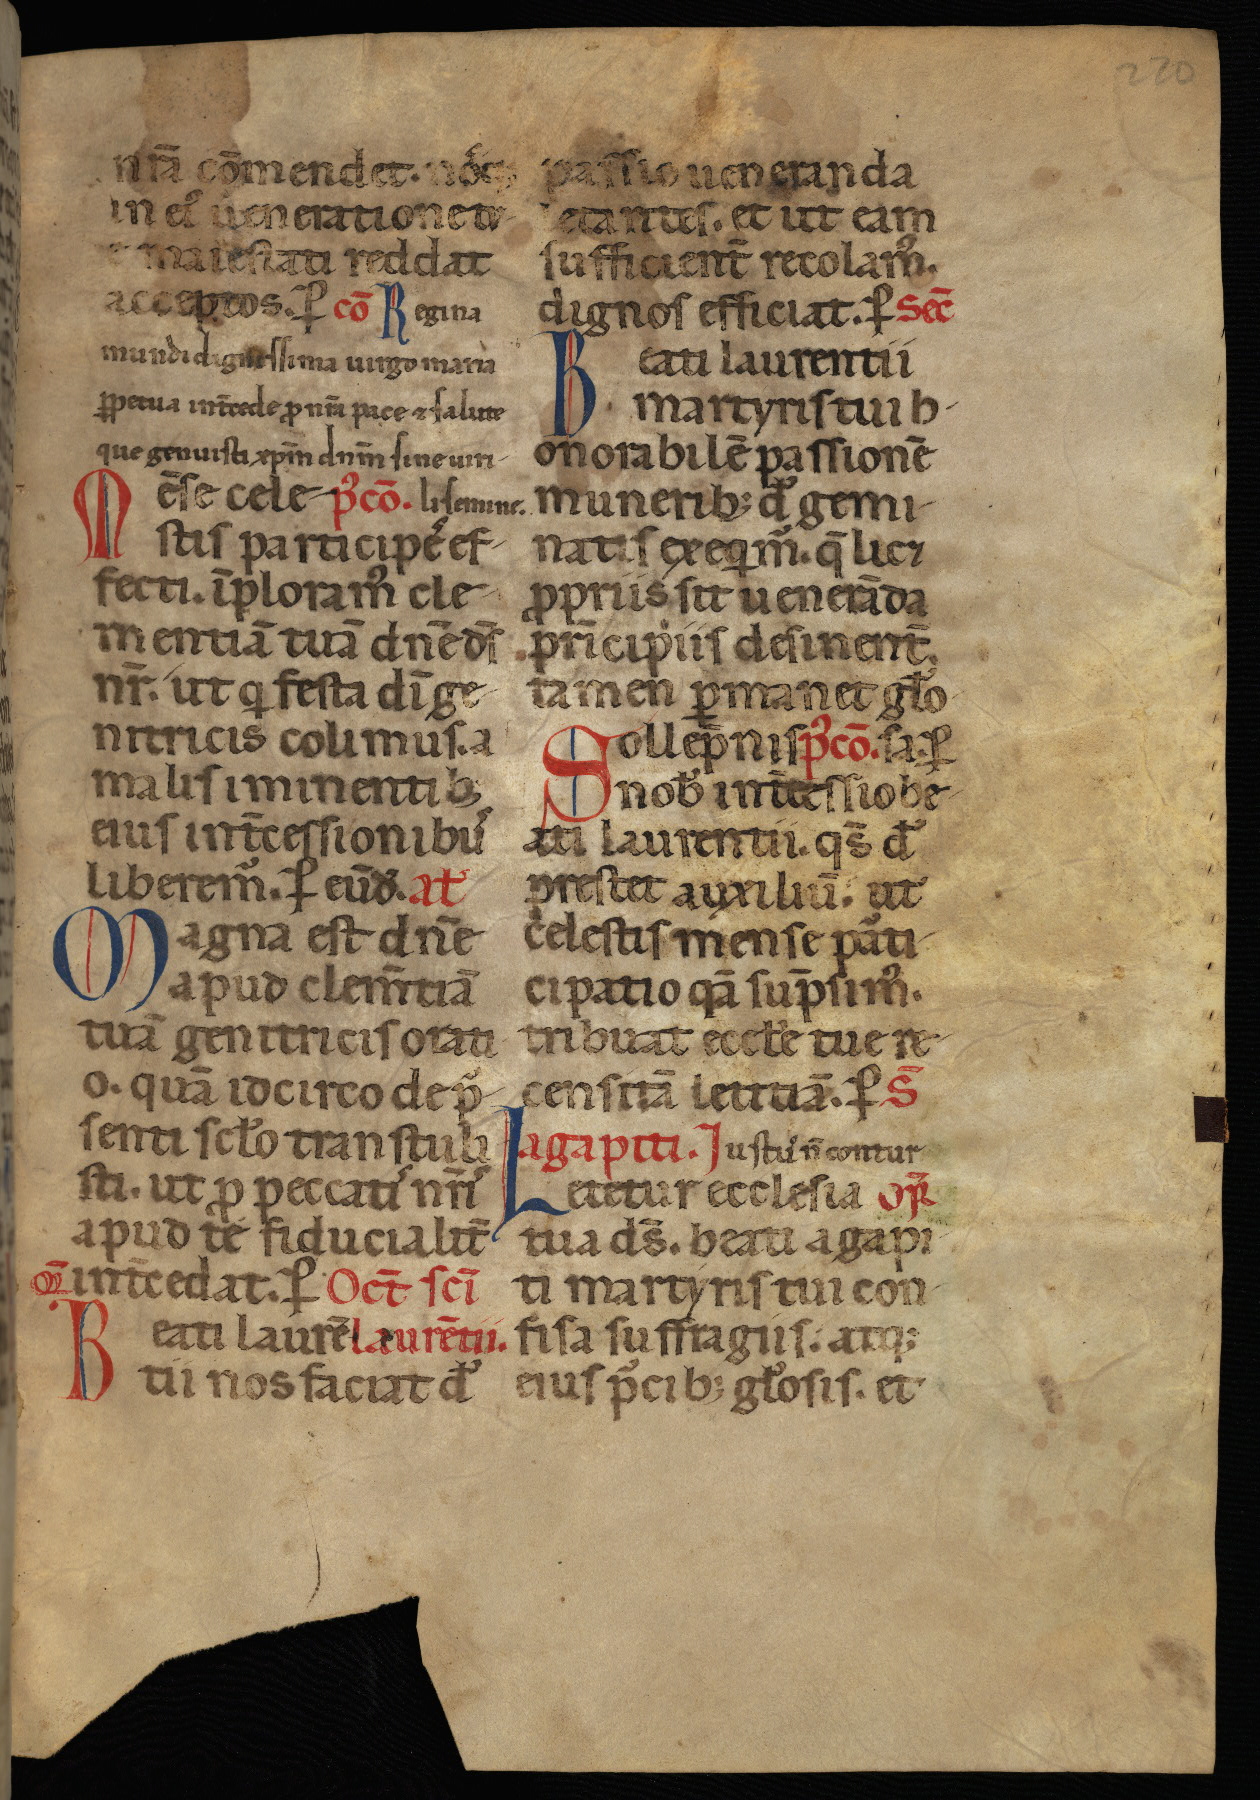 220
nr̄a cōmendet. nosq;
in ei᷎ ueneratione tu
e maiestati reddat
acceptos. P̲ cō Regina
mundi dignissima uirgo maria
ꝑpetua int̄cede ꝓ nr̄a pace ⁊ salute
que genuisti xp̄m dn̄m sine uiri
Mēse cele p᷎cō. li semine.
stis participes ef
fecti. īploram᷎ cle
mentiā tuā dn̄e ds̄
nr̄. ut q festa dī ge
nitricis colimus. a
malis iminentib;
eius int̄cessionibu᷎
liberem᷎. P̲ eūd. al̄
Magna est dn̄e
apud clem̄tiā
tuā genitricis orati
o. quā idcirco de p᷎
senti scl̄o transtuli
sti. ut ꝓ peccati᷎ nr̄i᷎
apud te fiducialit̄
or̄ int̄cedat. P̲ Oct̄ sc̄i
Beati laurē laurētii.
tii nos faciat d᷎
passio ueneranda
letantes. et ut eam
sufficient̄ recolam᷎.
dignos efficiat. P̲ Sec̄
Beati laurentii
martyris tui h
onorabilē passionē
munerib; d᷎ gemi
natis exeqim᷎. q̄ lic&
ꝓpriis sit uenerāda
prīcipiis desinent̄.
tamen ꝑmanet gl̄o
Sollēpnis p᷎cō. sa. P̲
nob᷎ int̄cessio be
ati laurentii. qs̄ d᷎
prestet auxiliū. ut
celestis mense p᷎ati
cipatio qā sūpsim᷎.
tribuat eccl̄e tue re
censitā letitiā. P̲ S̄
agapiti. Justu᷎ n̄ contur
Letetur ecclesia or̄
tua ds̄. beati agapi
ti martyris tui con
fisa suffragiis. atq;
eius p᷎cib; gl̄osis. et